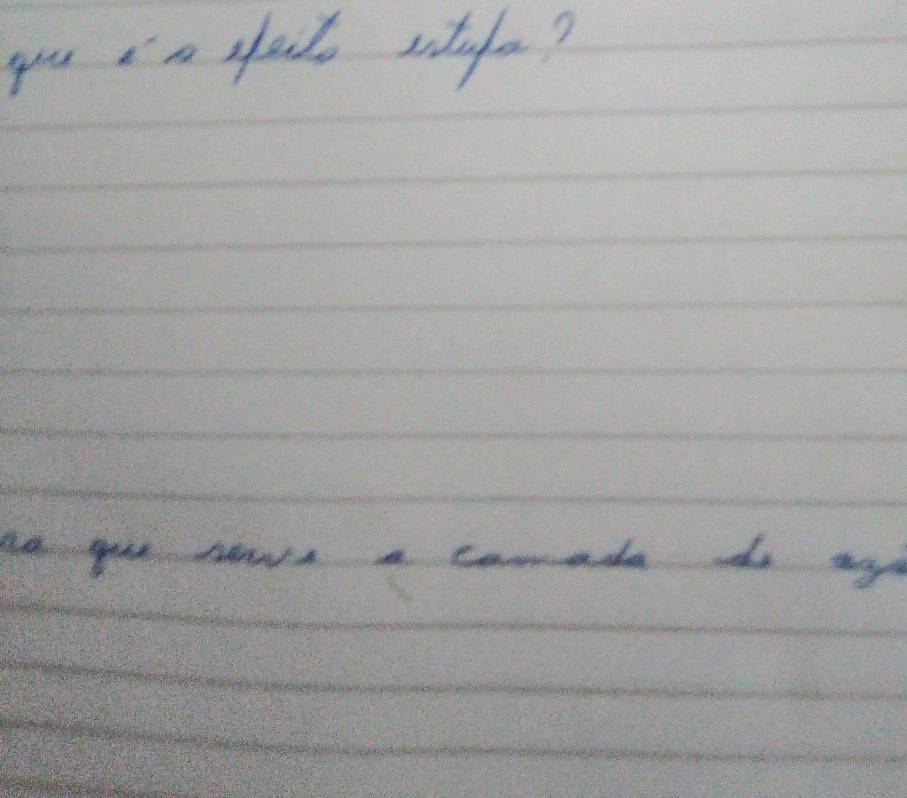 que é o efeito estufa?
ra que serve a camada de ozô